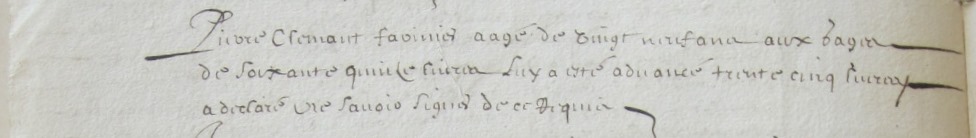 Pierre Clemant favinies aagé de vingt neuf ans aux gages
de soixante quinze livres luy a esté advancé trente cinq livres
a declaré ne savoir signer de ce requis